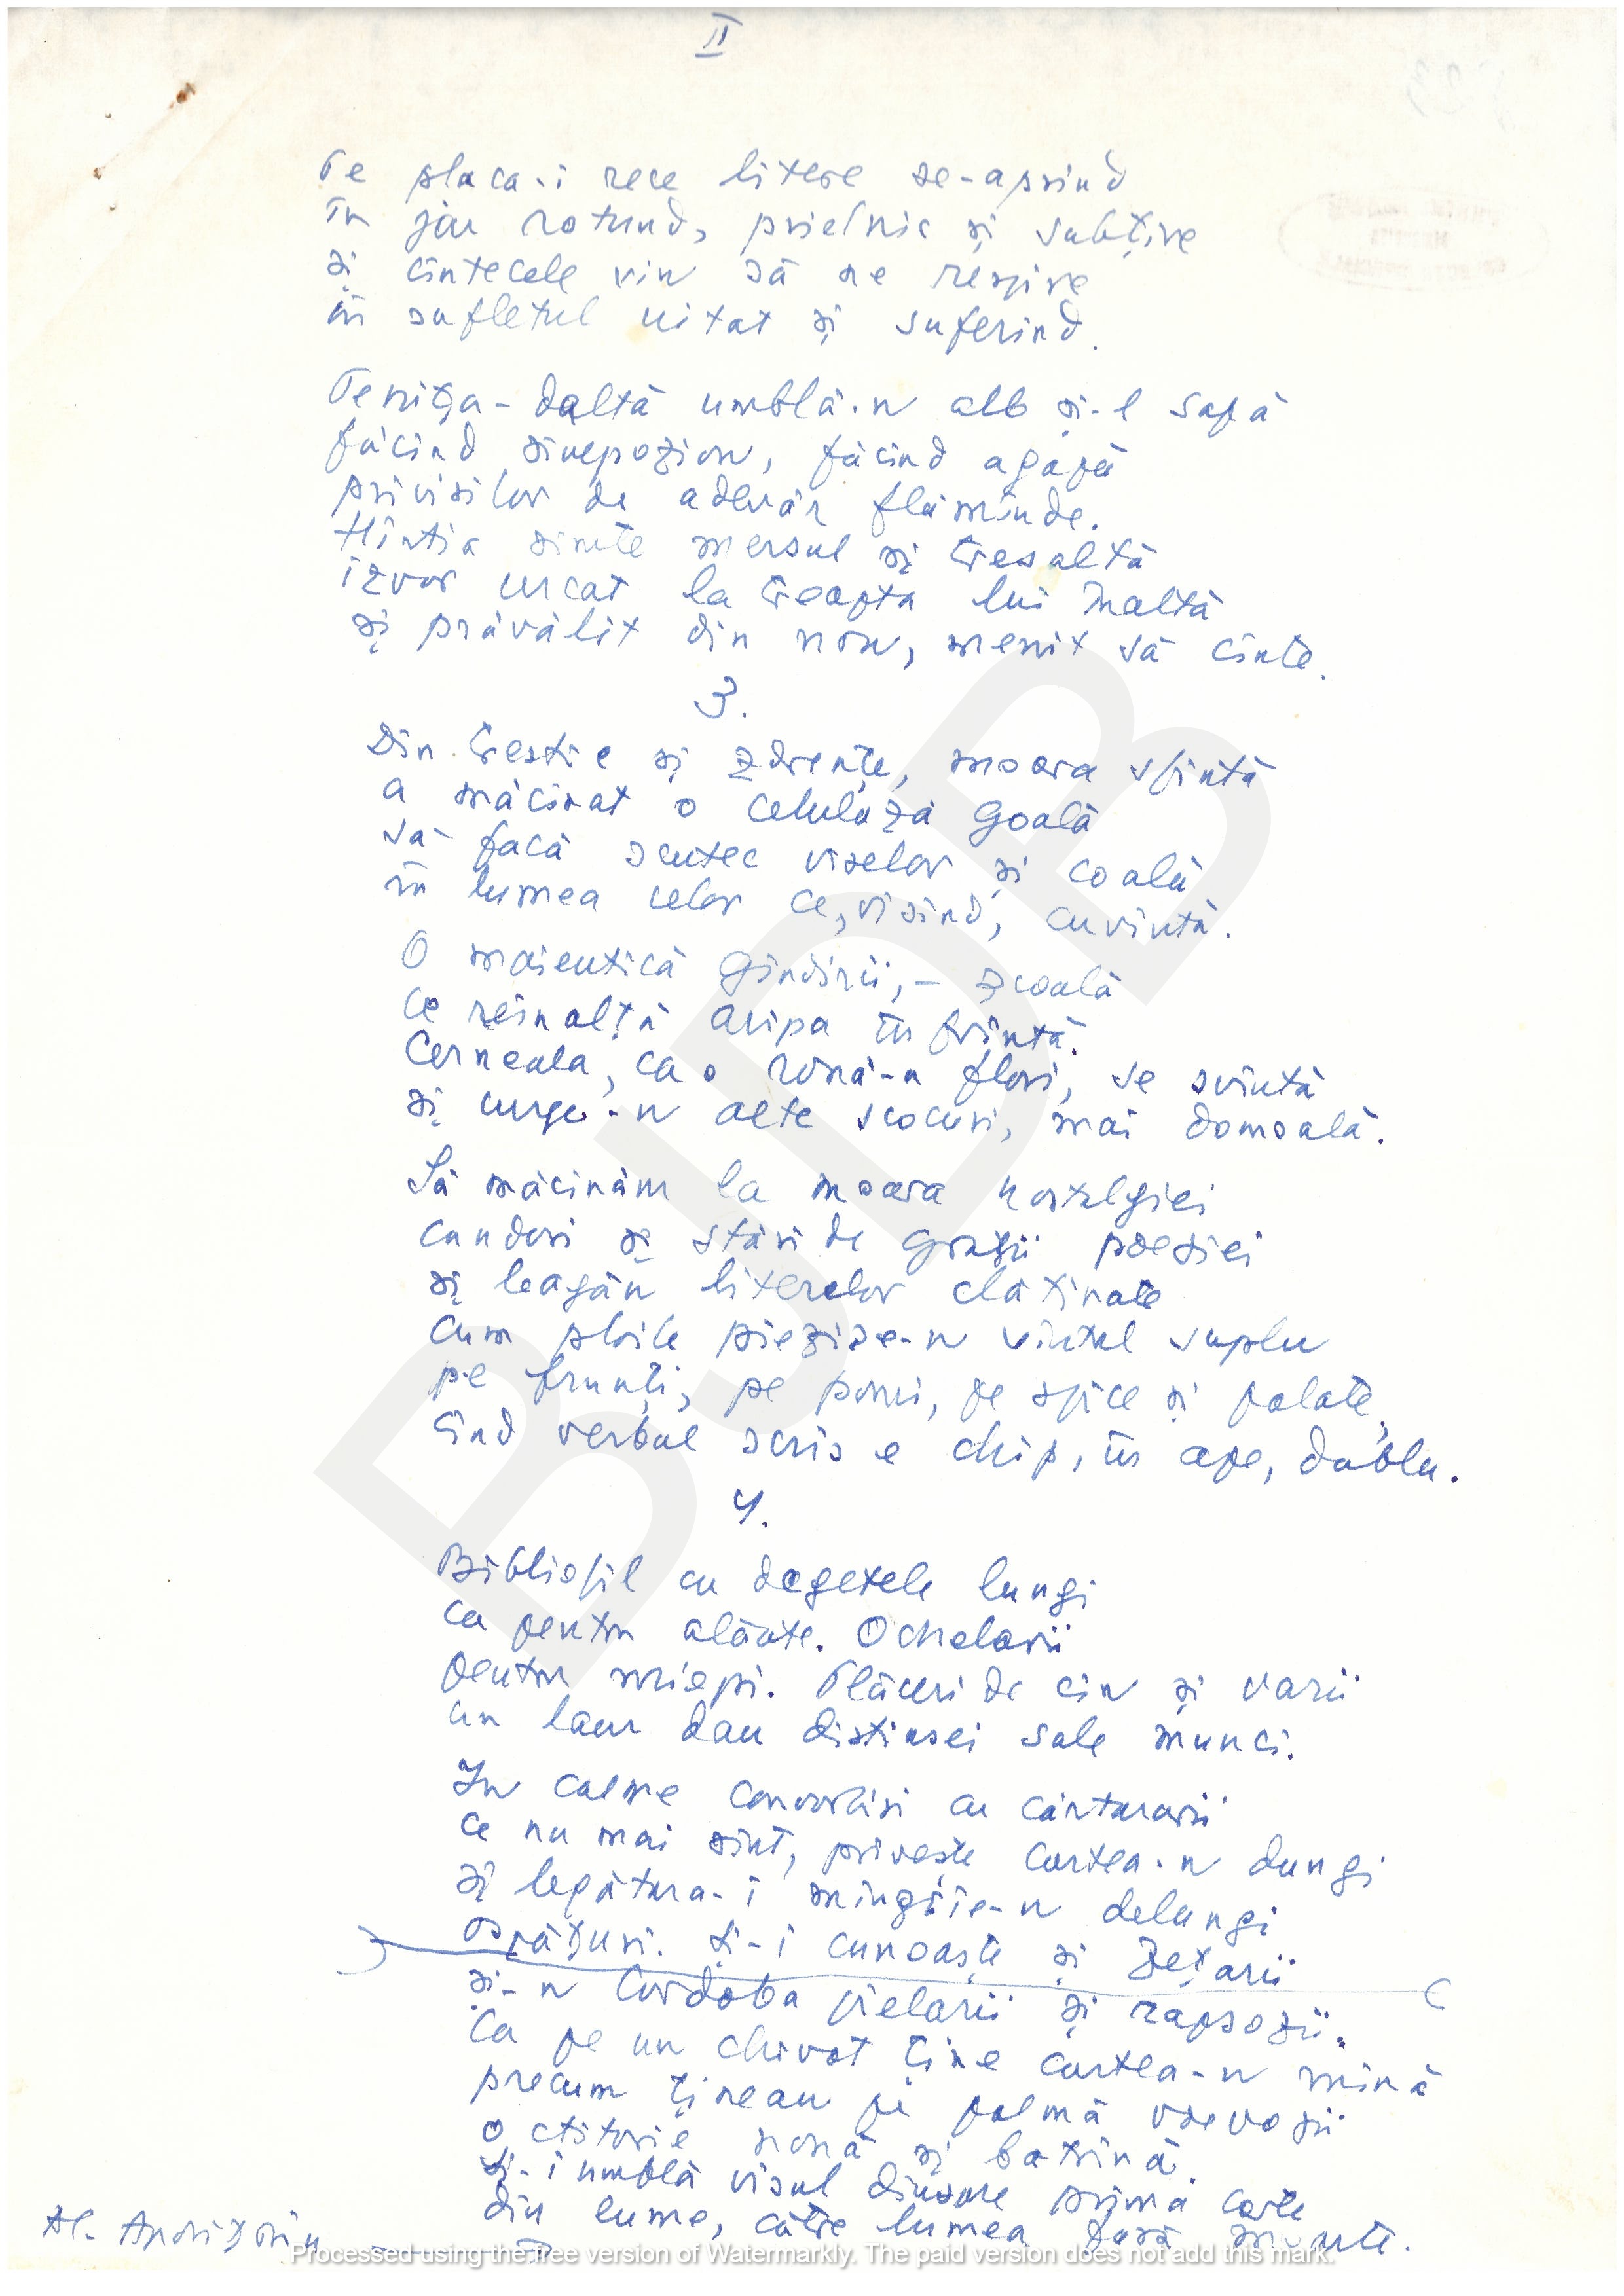 II
Pe placa-i rece litere se-aprind
în jar rotund, prielnic și subțire
și cîntecele vin să ne respire
în sufletul uitat și suferind.
Penița-daltă umblă-n alb și-l sapă
făcînd simpozion, făcînd agapă
privirilor de adevăr flămînde.
Hîrtia simte mersul și tresaltă
izvor urcat la treapta lui înaltă
și prăvălit din nou, menit să cînte.
3.
Din trestie și zdrențe, moara sfîntă
a măcinat o celuloză goală
să facă scutec viselor și coală
în lumea celor ce, visînd, cuvîntă.
O maieutică gîndirii, – școală
ce reînalță aripa înfrîntă.
Cerneala, ca o rouă-n flori, se svîntă
și curge-n alte scocuri, mai domoală.
Să măcinăm la moara nostalgiei
candori și stări de grații poeziei
și leagăn literelor clătinate
cum ploile piezișe-n vîntul suplu
pe frunți, pe pomi, pe spice și palate,
cînd verbul scris e chip, în ape, dublu.
4.
Bibliofil cu degetele lungi
ca pentru alăute. Ochelarii
pentru miopi. Plăceri de cin și varii
un laur dau distinsei sale munci.
In calme convorbiri cu cărturarii
ce nu mai sînt, privește cartea-n dungi
și legătura-i mîngîie-n delungi
ospățuri. Și-i cunoaște și zețarii
și-n Cordoba pielarii și rapsozii.
Ca pe un chivot ține cartea-n mînă
precum țineau pe palmă voevozii
o ctitorie nouă și bătrînă.
Și-i umblă visul dinspre prima carte
din lume, către lumea fără moarte.
Al. Andrițoiu
BJDB
Processed using the free version of Watermarkly. The paid version does not add this mark.